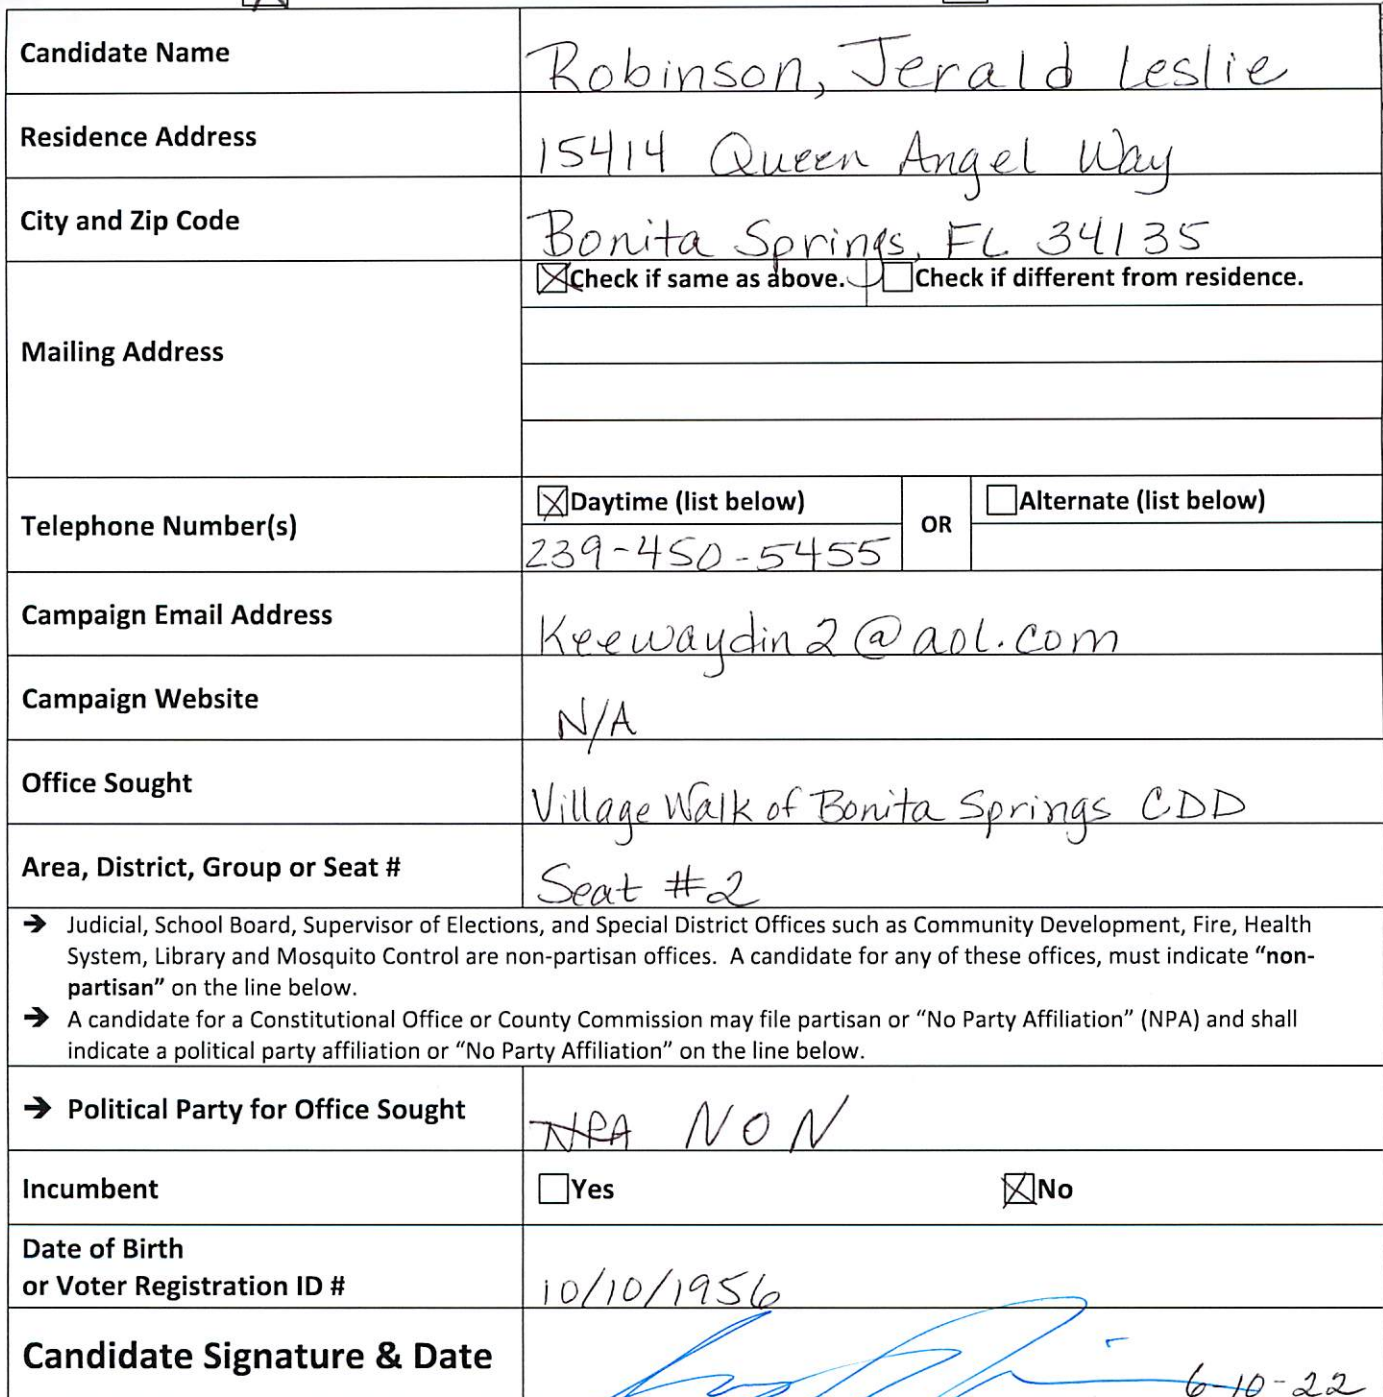 Candidate Name Robinson, Jerald Leslie
Residence Address 15414 Queen Angel Way
City and Zip Code Bonita Springs, FL 34135
Check if same as above. Check if different from residence.
Mailing Address
Daytime (list below) Alternate (list below)
Telephone Number(s) OR
239-450-5455
Campaign Email Address Keewaydin2@aol.com
Campaign Website N/A
Office Sought Village Walk of Bonita Springs CDD
Area, District, Group or Seat # Seat #2
→ Judicial, School Board, Supervisor of Elections, and Special District Offices such as Community Development, Fire, Health
System, Library and Mosquito Control are non-partisan offices. A candidate for any of these offices, must indicate “non-
partisan” on the line below.
→ A candidate for a Constitutional Office or County Commission may file partisan or “No Party Affiliation” (NPA) and shall
indicate a political party affiliation or “No Party Affiliation” on the line below.
→ Political Party for Office Sought NPA NON
Incumbent Yes No
Date of Birth
or Voter Registration ID # 10/10/1956
Candidate Signature & Date 6-10-22